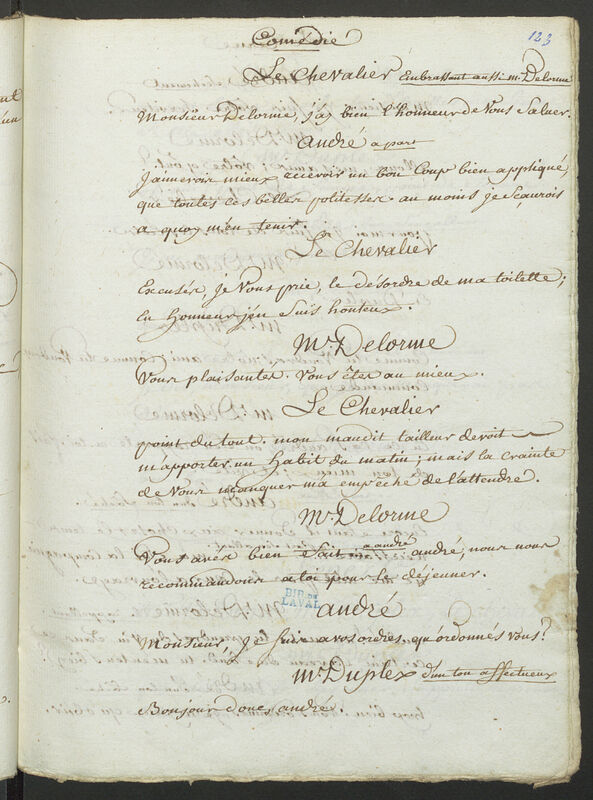 Comédie
123
Le Chevalier Embrassant aussi Mr. Delorme
Monsieur Delorme, j'ay bien l'honneur de Vous Saluer.
André a part
J'aimerois mieux recevoir un bon Coup bien appliqué,
que toutes ces belles politesses. au moins je Sçaurois
a quoy m'en tenir.
Le Chevalier
Excusés, je Vous prie, le désordre de ma toilette;
En honneur j'en Suis honteux.
Mr. Delorme
Vous plaisantés. Vous êtes au mieux.
Le Chevalier
point du tout. mon maudit tailleur devoit
m'apporter un habit du matin; mais la Crainte
de Vous manquer m'a empêché de l'attendre.
Mr. Delorme
Vous avés bien fait. a andré andré, nous nous
recommandons a toi pour le déjeuner.
BIB. DE
LAVAL
André
Monsieur, je Suis a vos ordres. qu'ordonnés Vous?
Mr. Duplex d'un ton affectueux
Bonjour donc, andré.